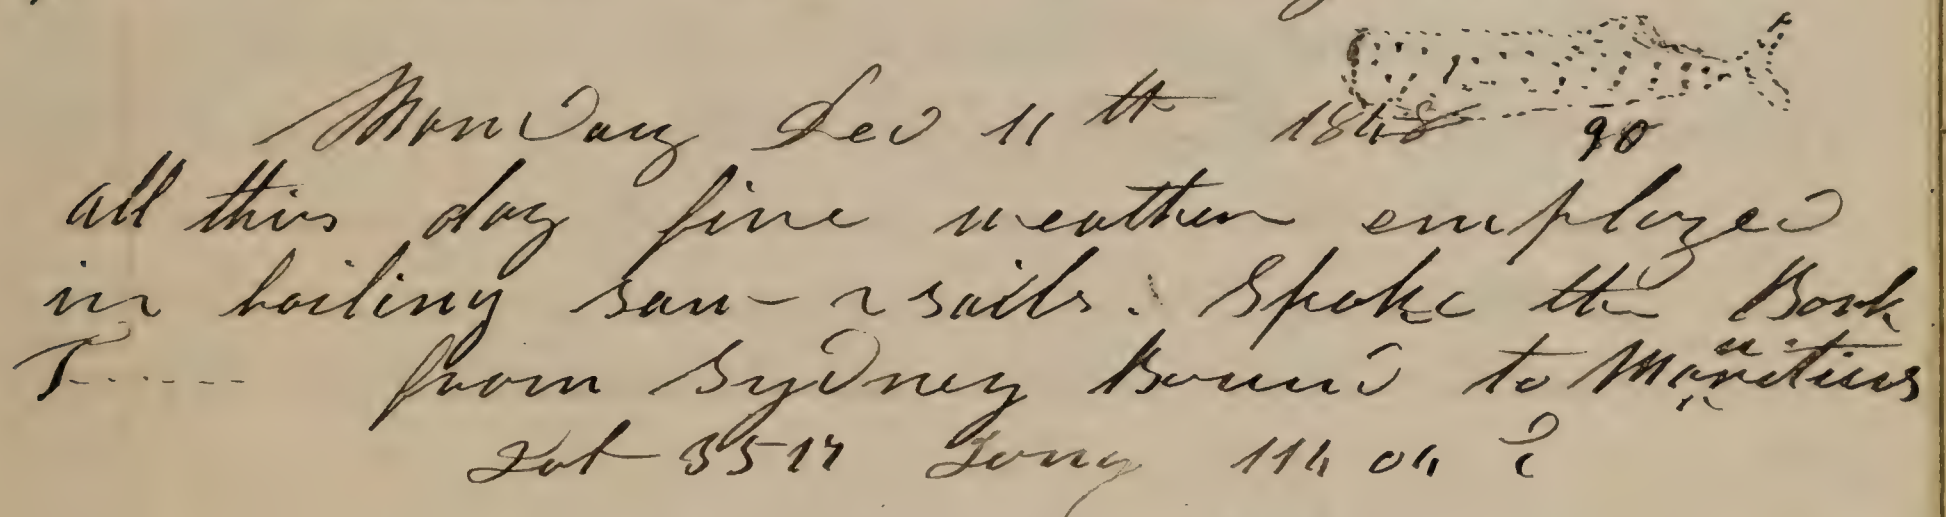 Monday Dec 11th 1848 90
all this day fine weather employed
in boiling saw- & sails. Spoke the Bark
T....... from Sydney Bound to Mauritius
Lat 35 17 Long 114 04 E